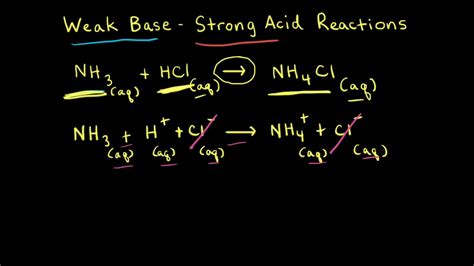 Weak Base - Strong Acid Reactions
NH₃(aq) + HCl(aq) → NH₄Cl(aq)
NH₃(aq) + H⁺(aq) + Cl⁻(aq) → NH₄⁺(aq) + Cl⁻(aq)